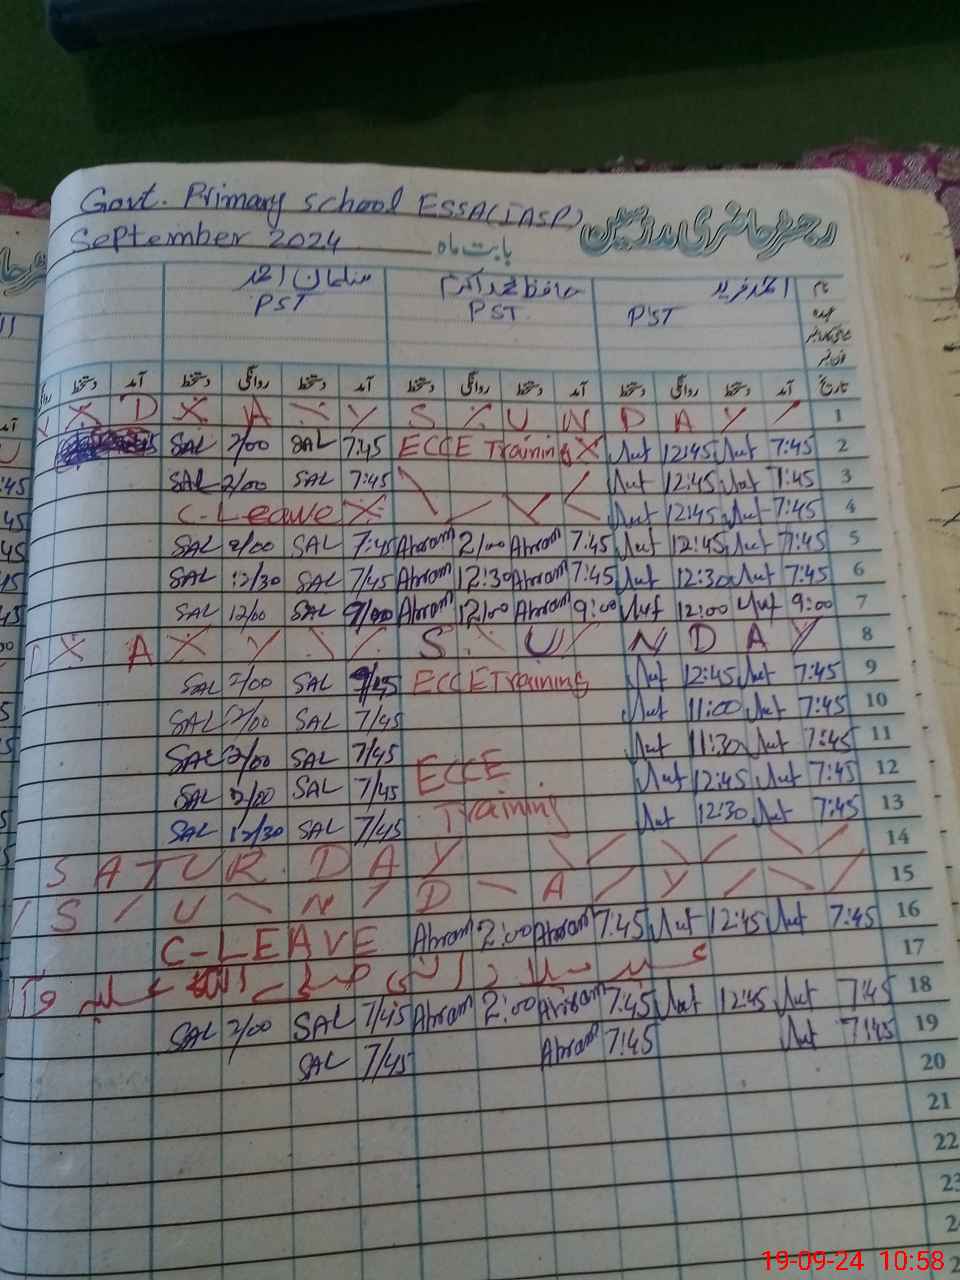 Govt. Primary school ESSA(IASP)
رجسٹر حاضری مدرسین
September 2024 بابت ماہ
احمد فرید حافظ محمد اکرم سلمان احمد نام
PST PST. PST عہدہ
تاریخ آمد دستخط روانگی دستخط آمد دستخط روانگی دستخط آمد دستخط روانگی دستخط آمد دستخط
X D X A X Y S X U N D A Y 1
SAL 2/00 SAL 7:45 ECCE Training X 12:45 7:45 2
SAL 2/00 SAL 7:45 12:45 7:45 3
C-Leave X 12:45 7:45 4
SAL 2/00 SAL 7:45 Akram 2/00 Akram 7:45 12:45 7:45 5
SAL 12/30 SAL 7/45 Akram 12:30 Akram 7:45 12:30 7:45 6
SAL 12/00 SAL 9/00 Akram 12/00 Akram 9:00 12:00 9:00 7
X A X Y S U N D A Y 8
SAL 2/00 SAL 7/45 ECCE Training 12:45 7:45 9
SAL 2/00 SAL 7/45 11:00 7:45 10
SAL 2/00 SAL 7/45 11:30 7:45 11
SAL 2/00 SAL 7/45 ECCE 12:45 7:45 12
SAL 12/30 SAL 7/45 Training 12:30 7:45 13
SATURDAY 14
SUNDAY 15
C-LEAVE Akram 2:00 Akram 7:45 12:45 7:45 16
عید میلاد النبی صلی اللہ علیہ و 17
SAL 2/00 SAL 7/45 Akram 2:00 Akram 7:45 12:45 7:45 18
SAL 7/45 Akram 7:45 7:45 19
20
21
22
23
19-09-24 10:58